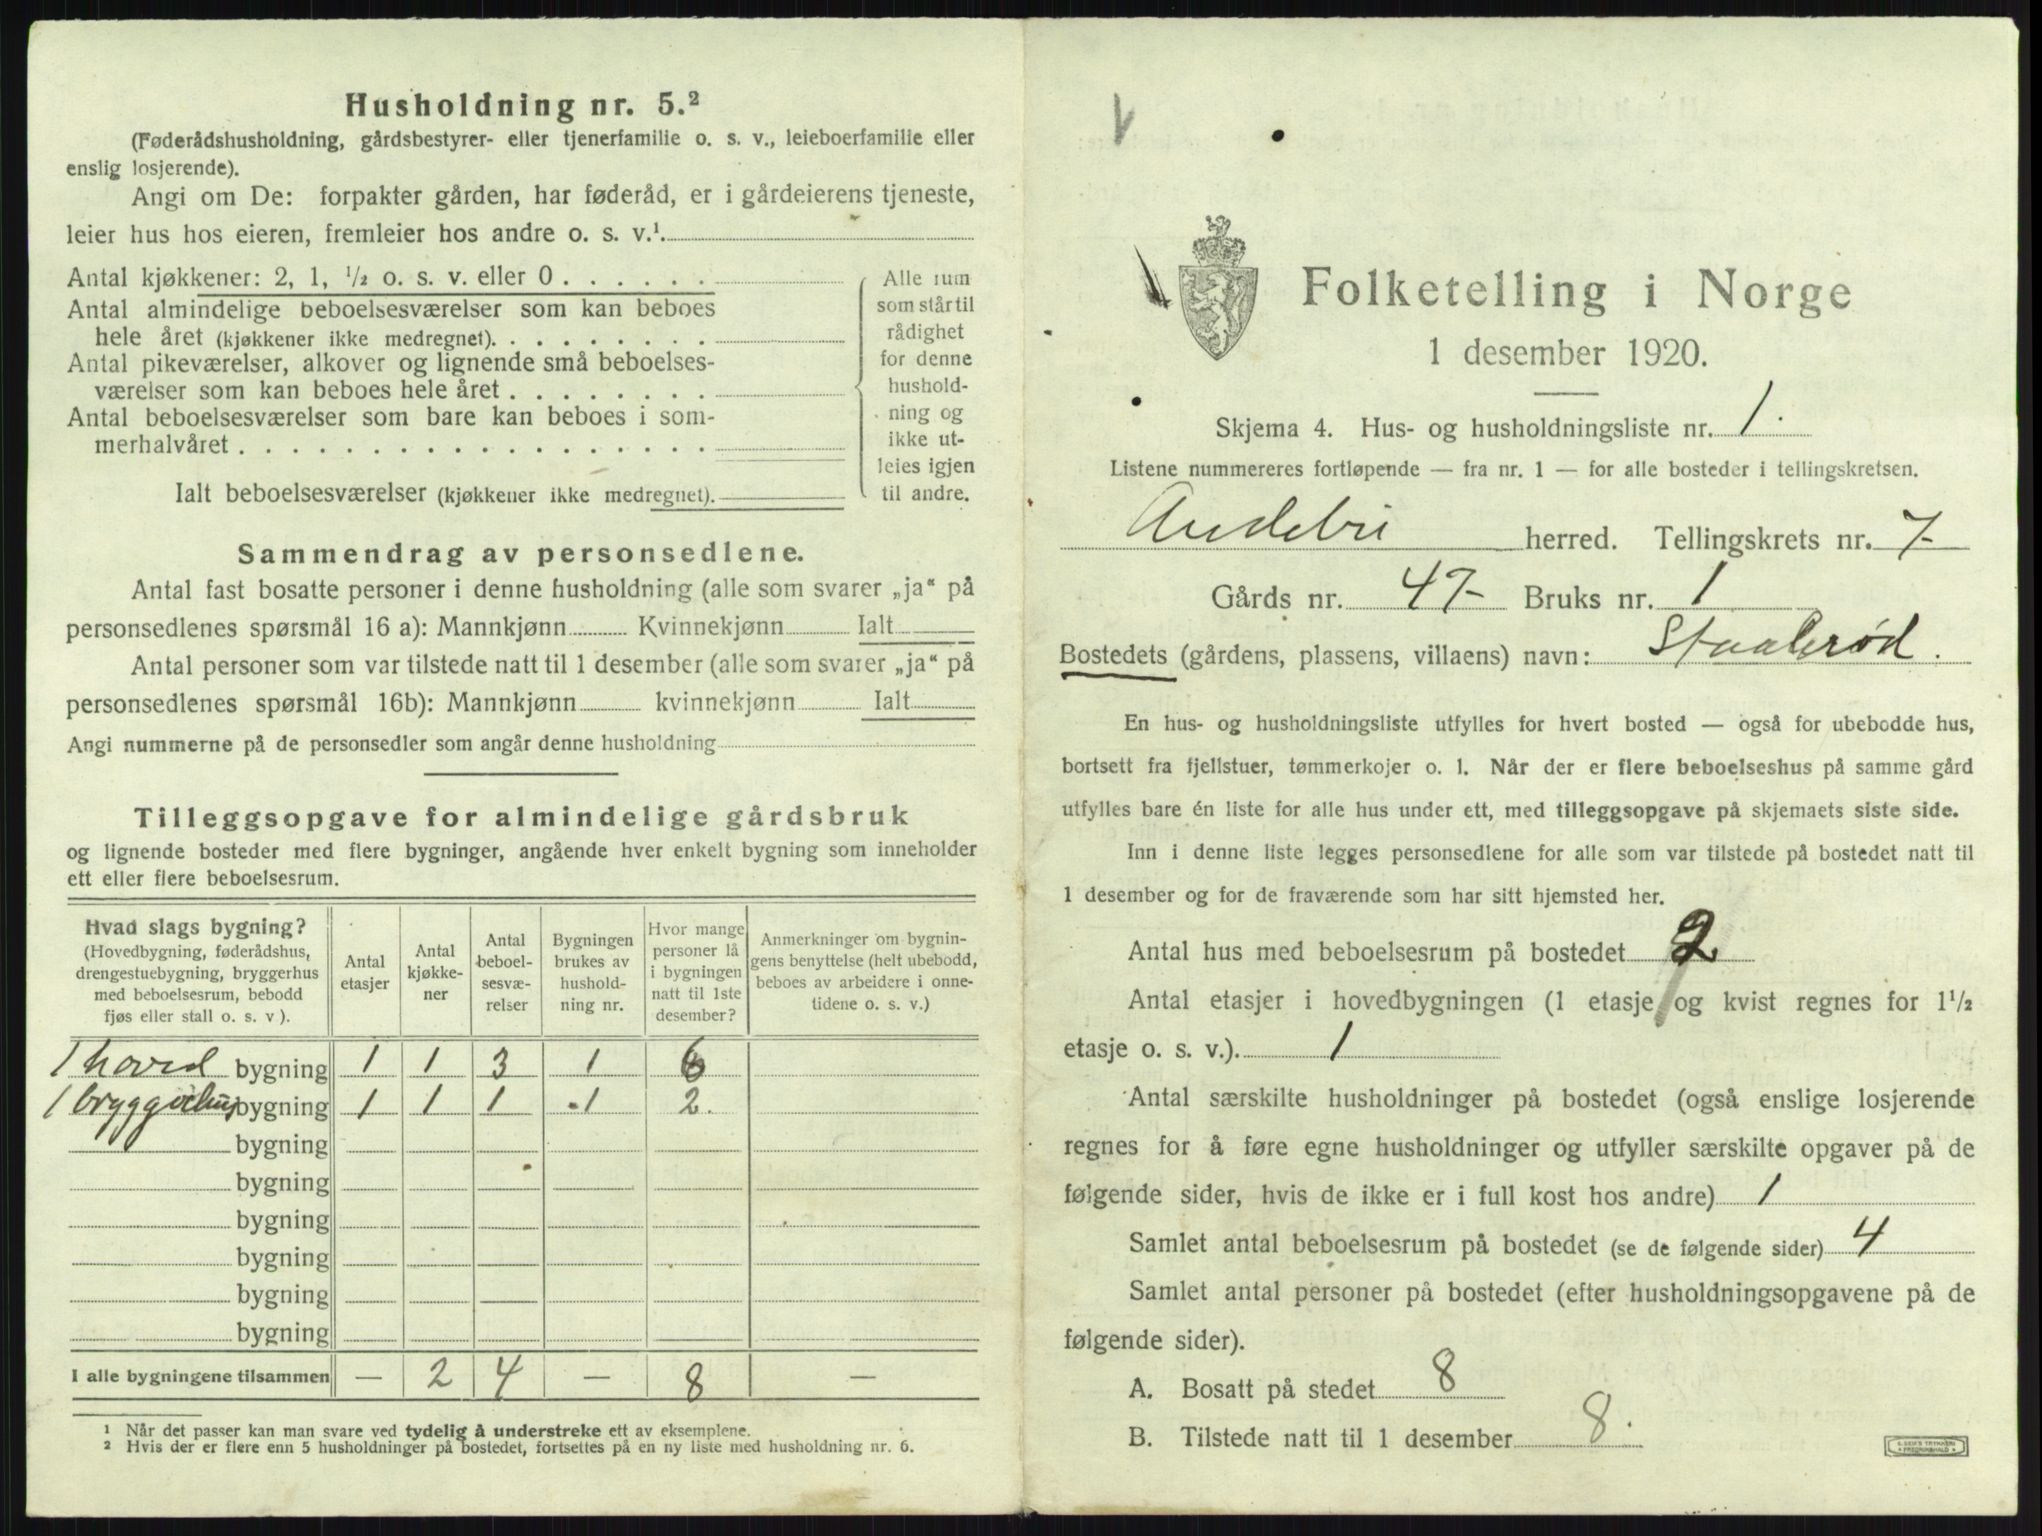 Husholdning nr. 5.²
(Føderådshusholdning, gårdsbestyrer- eller tjenerfamilie o. s. v., leieboerfamilie eller
enslig losjerende).
Angi om De: forpakter gården, har føderåd, er i gårdeierens tjeneste,
leier hus hos eieren, fremleier hos andre o. s. v.¹
Antal kjøkkener: 2, 1, ½ o. s. v. eller 0
Antal almindelige beboelsesværelser som kan beboes
hele året (kjøkkener ikke medregnet).
Antal pikeværelser, alkover og lignende små beboelses-
værelser som kan beboes hele året
Antal beboelsesværelser som bare kan beboes i som-
merhalvåret
Ialt beboelsesværelser (kjøkkener ikke medregnet).
Alle rum
som står til
rådighet
for denne
hushold-
ning og
ikke ut-
leies igjen
til andre.
Sammendrag av personsedlene.
Antal fast bosatte personer i denne husholdning (alle som svarer „ja“ på
personsedlenes spørsmål 16 a): Mannkjønn Kvinnekjønn Ialt
Antal personer som var tilstede natt til 1 desember (alle som svarer „ja“ på
personsedlenes spørsmål 16b): Mannkjønn kvinnekjønn Ialt
Angi nummerne på de personsedler som angår denne husholdning
Tilleggsopgave for almindelige gårdsbruk
og lignende bosteder med flere bygninger, angående hver enkelt bygning som inneholder
ett eller flere beboelsesrum.
Hvad slags bygning?
(Hovedbygning, føderådshus,
drengestuebygning, bryggerhus
med beboelsesrum, bebodd
fjøs eller stall o. s. v ).
Antal
etasjer
Antal
kjøkke-
ner
Antal
beboel-
sesvæ-
relser
Bygningen
brukes av
hushold-
ning nr.
Hvor mange
personer lå
i bygningen
natt til 1ste
desember?
Anmerkninger om bygnin-
gens benyttelse (helt ubebodd,
beboes av arbeidere i onne-
tidene o. s. v.)
1 hoved bygning 1 1 3 1 6
1 bryggerhus bygning 1 1 1 1 2.
bygning
bygning
bygning
bygning
bygning
bygning
I alle bygningene tilsammen — 2 4 — 8 —
¹ Når det passer kan man svare ved tydelig å understreke ett av eksemplene.
² Hvis der er flere enn 5 husholdninger på bostedet, fortsettes på en ny liste med husholdning nr. 6.
Folketelling i Norge
1 desember 1920.
Skjema 4. Hus- og husholdningsliste nr. 1.
Listene nummereres fortløpende — fra nr. 1 — for alle bosteder i tellingskretsen.
Andebu herred. Tellingskrets nr. 7-
Gårds nr. 47- Bruks nr. 1
Bostedets (gårdens, plassens, villaens) navn: Staalerød.
En hus- og husholdningsliste utfylles for hvert bosted — også for ubebodde hus,
bortsett fra fjellstuer, tømmerkojer o. l. Når der er flere beboelseshus på samme gård
utfylles bare én liste for alle hus under ett, med tilleggsopgave på skjemaets siste side.
Inn i denne liste legges personsedlene for alle som var tilstede på bostedet natt til
1 desember og for de fraværende som har sitt hjemsted her.
Antal hus med beboelsesrum på bostedet 2
Antal etasjer i hovedbygningen (1 etasje og kvist regnes for 1½
etasje o. s. v.). 1
Antal særskilte husholdninger på bostedet (også enslige losjerende
regnes for å føre egne husholdninger og utfyller særskilte opgaver på de
følgende sider, hvis de ikke er i full kost hos andre) 1
Samlet antal beboelsesrum på bostedet (se de følgende sider) 4
Samlet antal personer på bostedet (efter husholdningsopgavene på de
følgende sider).
A. Bosatt på stedet 8
B. Tilstede natt til 1 desember 8.